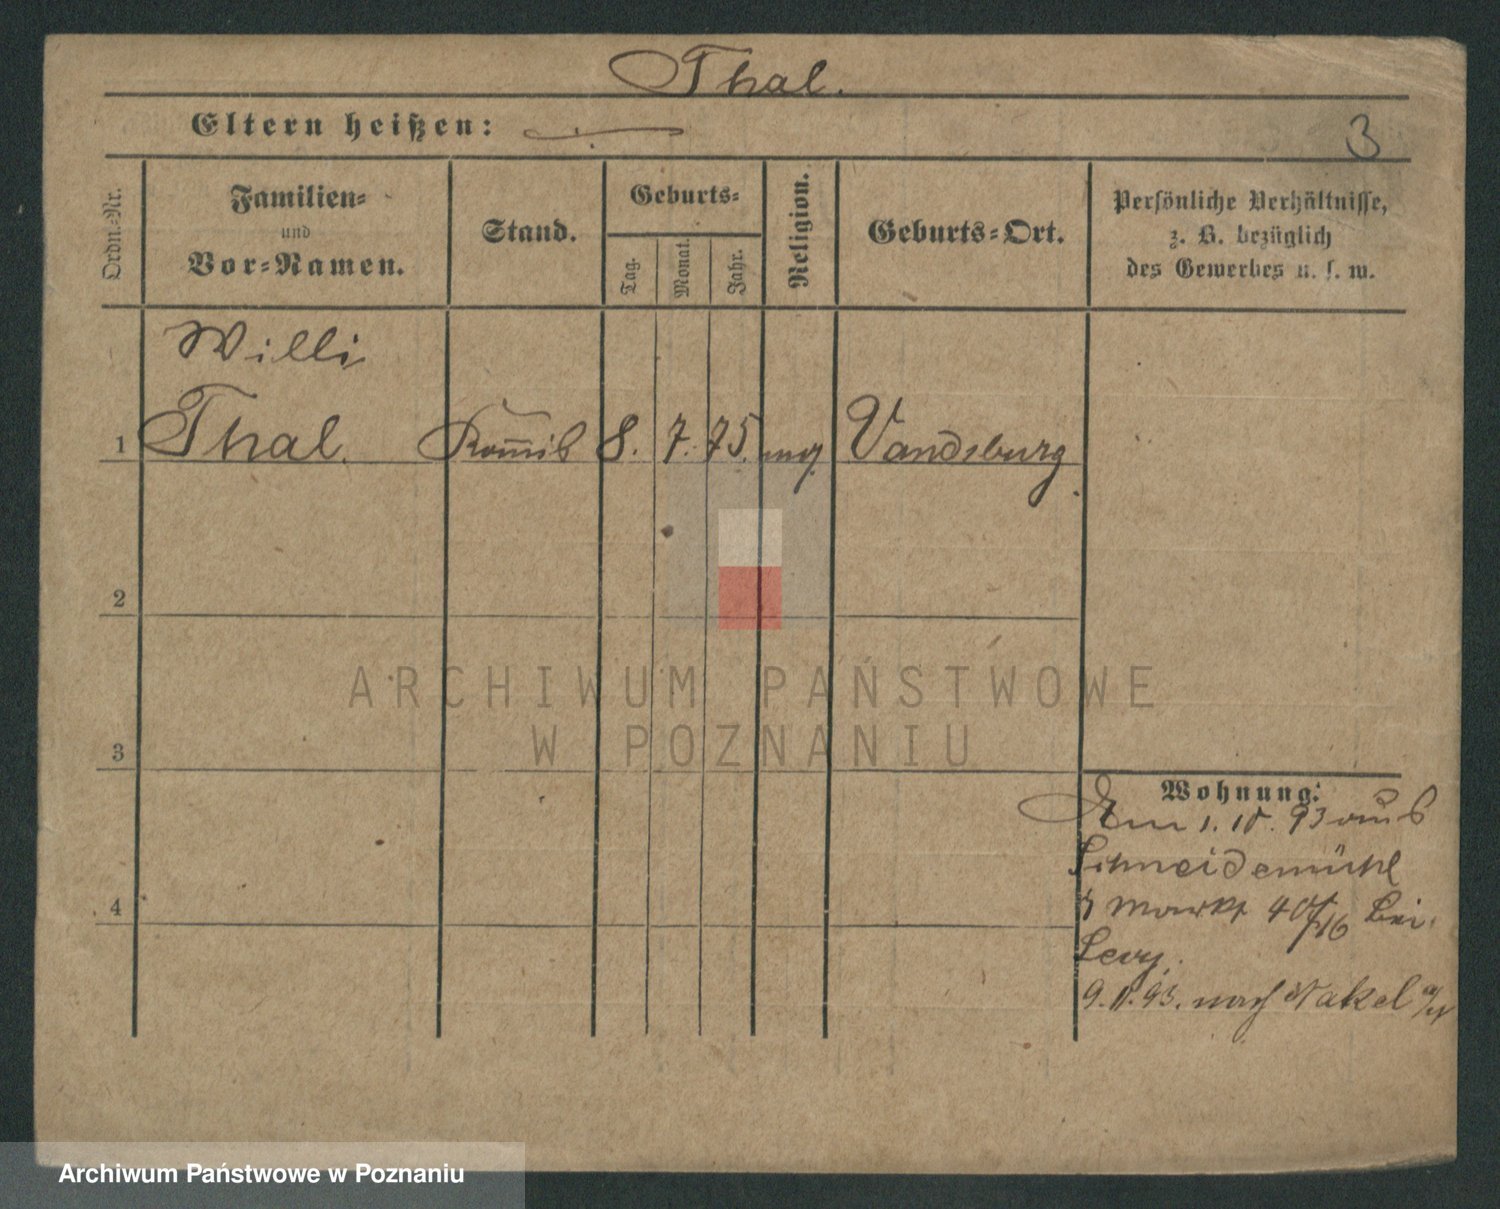 Thal.
Eltern heißen:
3
Ordn.-Nr.
Familien-
und
Vor-Namen.
Stand.
Geburts-
Tag.
Monat.
Jahr.
Religion.
Geburts-Ort.
Persönliche Verhältnisse,
z. B. bezüglich
des Gewerbes u. s. w.
Willi
1 Thal. Kom̄is 8. 7. 75. Vandsburg
2
3
4
ARCHIWUM PAŃSTWOWE
W POZNANIU
Wohnung:
Am 1. 10. 93 aus
Schneidemühl
Markt 40 bei
Levy.
9. 11. 93. nach Nakel
Archiwum Państwowe w Poznaniu